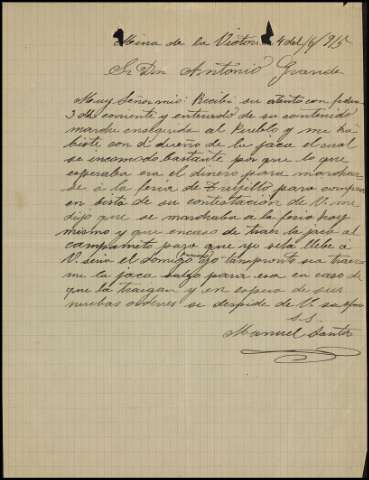 Mina de la Victoria 4 del /6/915
Sr Dn Antonio Grande
Muy Señor mio: Recibi su atenta con fecha
3 del corriente y enterado de su contenido
marche enseguida al Pueblo y me ha
biste con el dueño de la jaca el cual
se incomodo bastante por que lo que
esperaba era el dinero para marchar
se á la feria de Trujillo para comprar
en bista de su contestacion de V. me
dijo que se marchaba a la feria hoy
mismo y que encaso de traer la jaca al
campamento para que yo sela llebe á
V. seria el Domingo yo tan pronto sea traer
me la jaca salgo para esa en caso de
que la traigan y en espera de sus
nuebas ordenes se despide de V. su afmo
s.s.
Manuel Santos